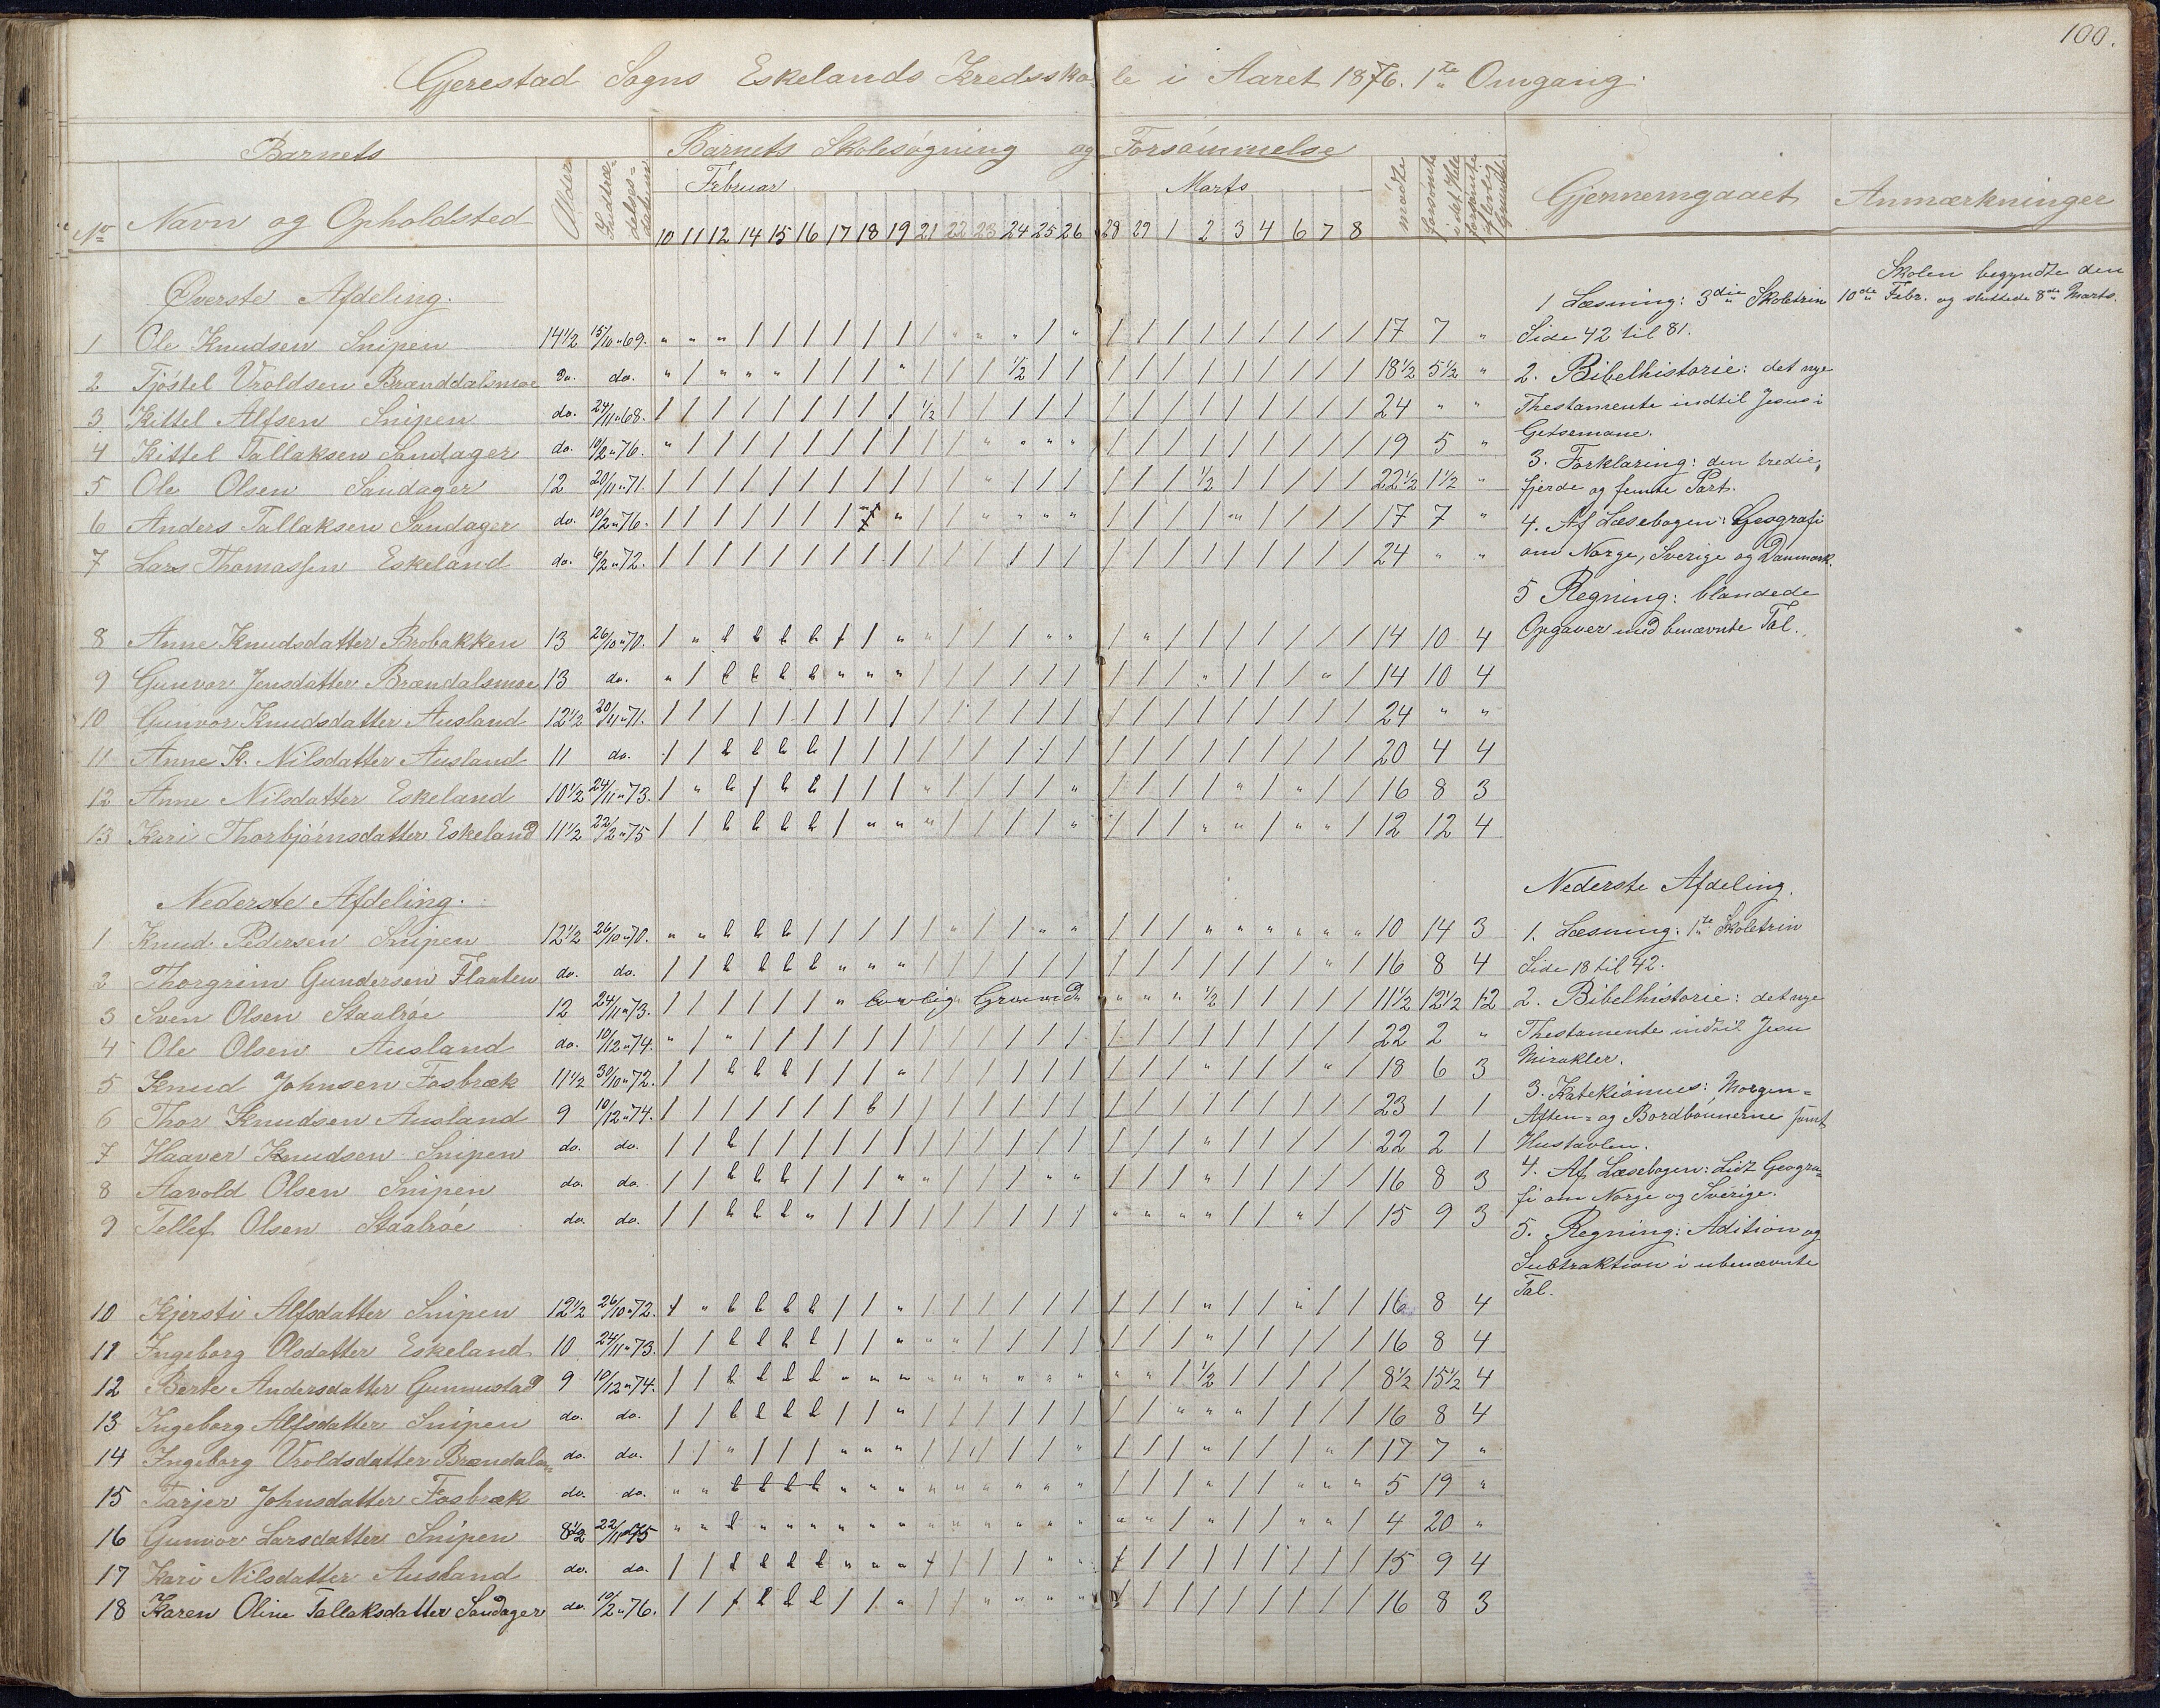 100.
Gjerestad Sogns Eskelands Kredsskole i Aaret 1876. 1ste Omgang.
Barnets
Barnets Skolesøgning og Forsømmelse
No Navn og Opholdsted
Alder
Indtrædelses-datum
Februar
Marts
mødte
forsømte i det Hele
Gjennemgaaet
Anmærkninger
10 11 12 14 15 16 17 18 19 21 22 23 24 25 26 28 29 1 2 3 4 6 7 8
Øverste Afdeling.
1 Ole Knudsen Snipen 14 1/2 15/10 "69. " " " / / / / / / / " " " / " / / / / / / / / / 17 7 "
2 Tjøstel Vroldsen Brænddalsmoe do. do. " / " " " / / / " / / / 1/2 / / / / / / / / / / / 18 1/2 5 1/2 "
3. Kittel Alfsen Snipen do. 24/11 "68. / / / / / / / / / 1/2 / / / / / / / / / / / / / / 24 " "
4 Kittel Tallaksen Sandager do. 10/2 "76. " / / / / / / / / / / " " " " / / / / / / / / / 19 5 "
5 Ole Olsen Sandager 12 20/11 "71. / / / / / / / / / / / " / / / / / / 1/2 / / / / / 22 1/2 1 1/2 "
6 Anders Tallaksen Sandager do. 10/2 "76. 17 7 "
7 Lars Thomassen Eskeland do. 6/2 "72. / / / / / / / / / / / / / / / / / / / / / / / / 24 " "
8 Anne Knudsdatter Brobakken 13 26/10 "70. 14 10 4
9 Gunvor Jensdatter Brændalsmoe 13 do. 14 10 4
10 Gunvor Knudsdatter Ausland 12 1/2 20/11 "71. / / / / / / / / / / / / / / / / / / / / / / / / 24 " "
11 Anne K. Nilsdatter Ausland 11 do. 20 4 4
12 Anne Nilsdatter Eskeland 10 1/2 24/11 "73. 16 8 3
13 Kari Thorbjørnsdatter Eskeland 11 1/2 22/2 "75 12 12 4
Nederste Afdeling.
1 Knud Pedersen Snipen 12 1/2 26/10 "70. 10 14 3
2 Thorgrim Gundersen Flaaten do. do. 16 8 4
3 Sven Olsen Staalrøe 12 24/11 "73. / / / / / / " lovlig Grund " " " 1/2 / / / / / 11 1/2 12 1/2 12
4 Ole Olsen Ausland do. 10/12 "74. " / " / / / / / / / / / / / / / / / / / / / / / 22 2 "
5 Knud Johnsen Fosbræk 11 1/2 30/10 "72. 18 6 3
6 Thor Knudsen Ausland 9 10/12 "74. 23 1 1
7 Haaver Knudsen Snipen do. do. 22 2 1
8 Aavold Olsen Snipen do. do. 16 8 3
9 Tellef Olsen Staalrøe do. do. 15 9 3
10 Kjersti Alfsdatter Snipen 12 1/2 26/10 "72. 16 8 4
11 Ingeborg Olsdatter Eskeland 10 24/11 "73. 16 8 4
12 Berte Andersdatter Gunnustad 9 10/12 "74. 8 1/2 15 1/2 4
13 Ingeborg Alfsdatter Snipen do. do. 16 8 4
14 Ingeborg Vroldsdatter Brændals- do. do. 17 7 "
15 Tarjer Johnsdatter Fosbræk do. do. 5 19 "
16 Gunvor Larsdatter Snipen 8 1/2 22/11 "75 4 20 "
17 Kari Nilsdatter Ausland do. do. 15 9 4
18 Karen Oline Tallaksdatter Sandager do. 10/2 "76. 16 8 3
1 Læsning: 3die Skoletrin
Side 42 til 81.
2. Bibelhistorie: det nye
Thestamente indtil Jesus i
Getsemane.
3. Forklaring: den tredie,
fjerde og femte Part.
4. Af Læsebogen: Geografi
om Norge, Sverige og Danmark.
5 Regning: blandede
Opgaver med benævnte Tal.
Nederste Afdeling.
1. Læsning: 1ste Skoletrin
Side 18 til 42.
2. Bibelhistorie: det nye
Thestamente indtil Jesu
Mirakler.
3. Katekismus: Morgen-
Aften- og Bordbønnerne samt
Hustavlen.
4. Af Læsebogen: Lidt Geogra-
fi om Norge og Sverige.
5. Regning: Adition og
Subtraktion i ubenævnte
Tal.
Skolen begyndte den
10de Febr. og sluttede 8de Marts.